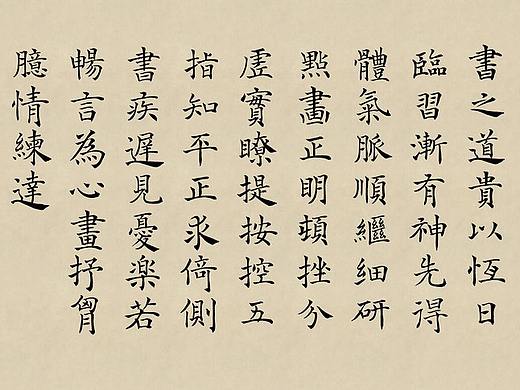 書之道貴以恆日
臨習漸有神先得
體氣脈順繼細研
點畫正明頓挫分
虛實瞭提按控五
指知平正求倚側
書疾遲見憂楽若
暢言為心畫抒胷
臆情練達